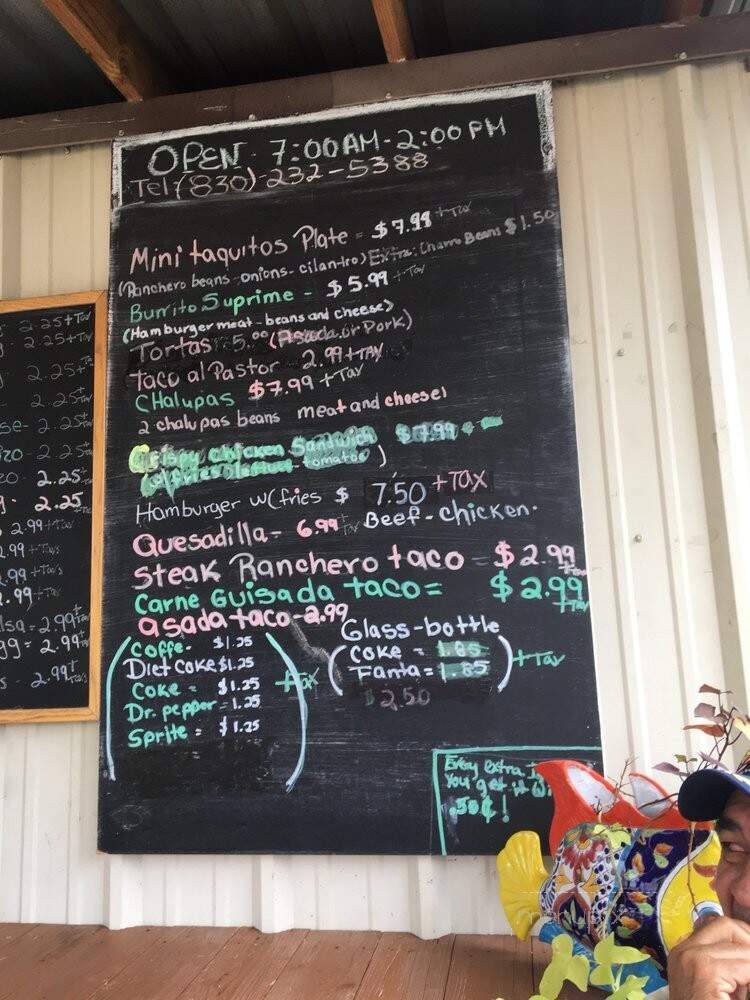 OPEN - 7:00AM - 2:00PM
Tel (830)-232-5388
Mini taquitos Plate = $7.99 +TAX
(Ranchero beans-onions-cilantro) Extra: Charro Beans $1.50
Burrito Suprime - $5.99 +Tax
(Hamburger meat-beans and cheese)
Tortas 5.00 (Asada or Pork)
Taco al Pastor 2.99+TAX
CHalupas $7.99 +TAX
2 chalupas beans meat and cheese)
Crispy Chicken Sandwich $7.99 +
fries lettuce-tomatoe)
Hamburger w(fries $ 7.50 +TAX
Beef-chicken.
Quesadilla- 6.99 +Tax
Steak Ranchero taco = $2.99 +Tax
Carne Guisada taco = $2.99 +Tax
asada taco-2.99
Coffe- $1.25
Diet Coke $1.25
Coke = $1.25
Dr. pepper - 1.25
Sprite = $1.25
+Tax
Glass-bottle
(Coke = 1.85
Fanta = 1.85)
+Tax
$2.50
Every extra
You get it
.50¢!
2.25+Tax
2.25+Tax
2.25+
2.25+
se- 2.25+
izo- 2.25+
zo - 2.25+
2.25
2.99+Tax
2.99+Tax
2.99+Tax
2.99+Tax
lsa = 2.99+
gg = 2.99+
s - 2.99+